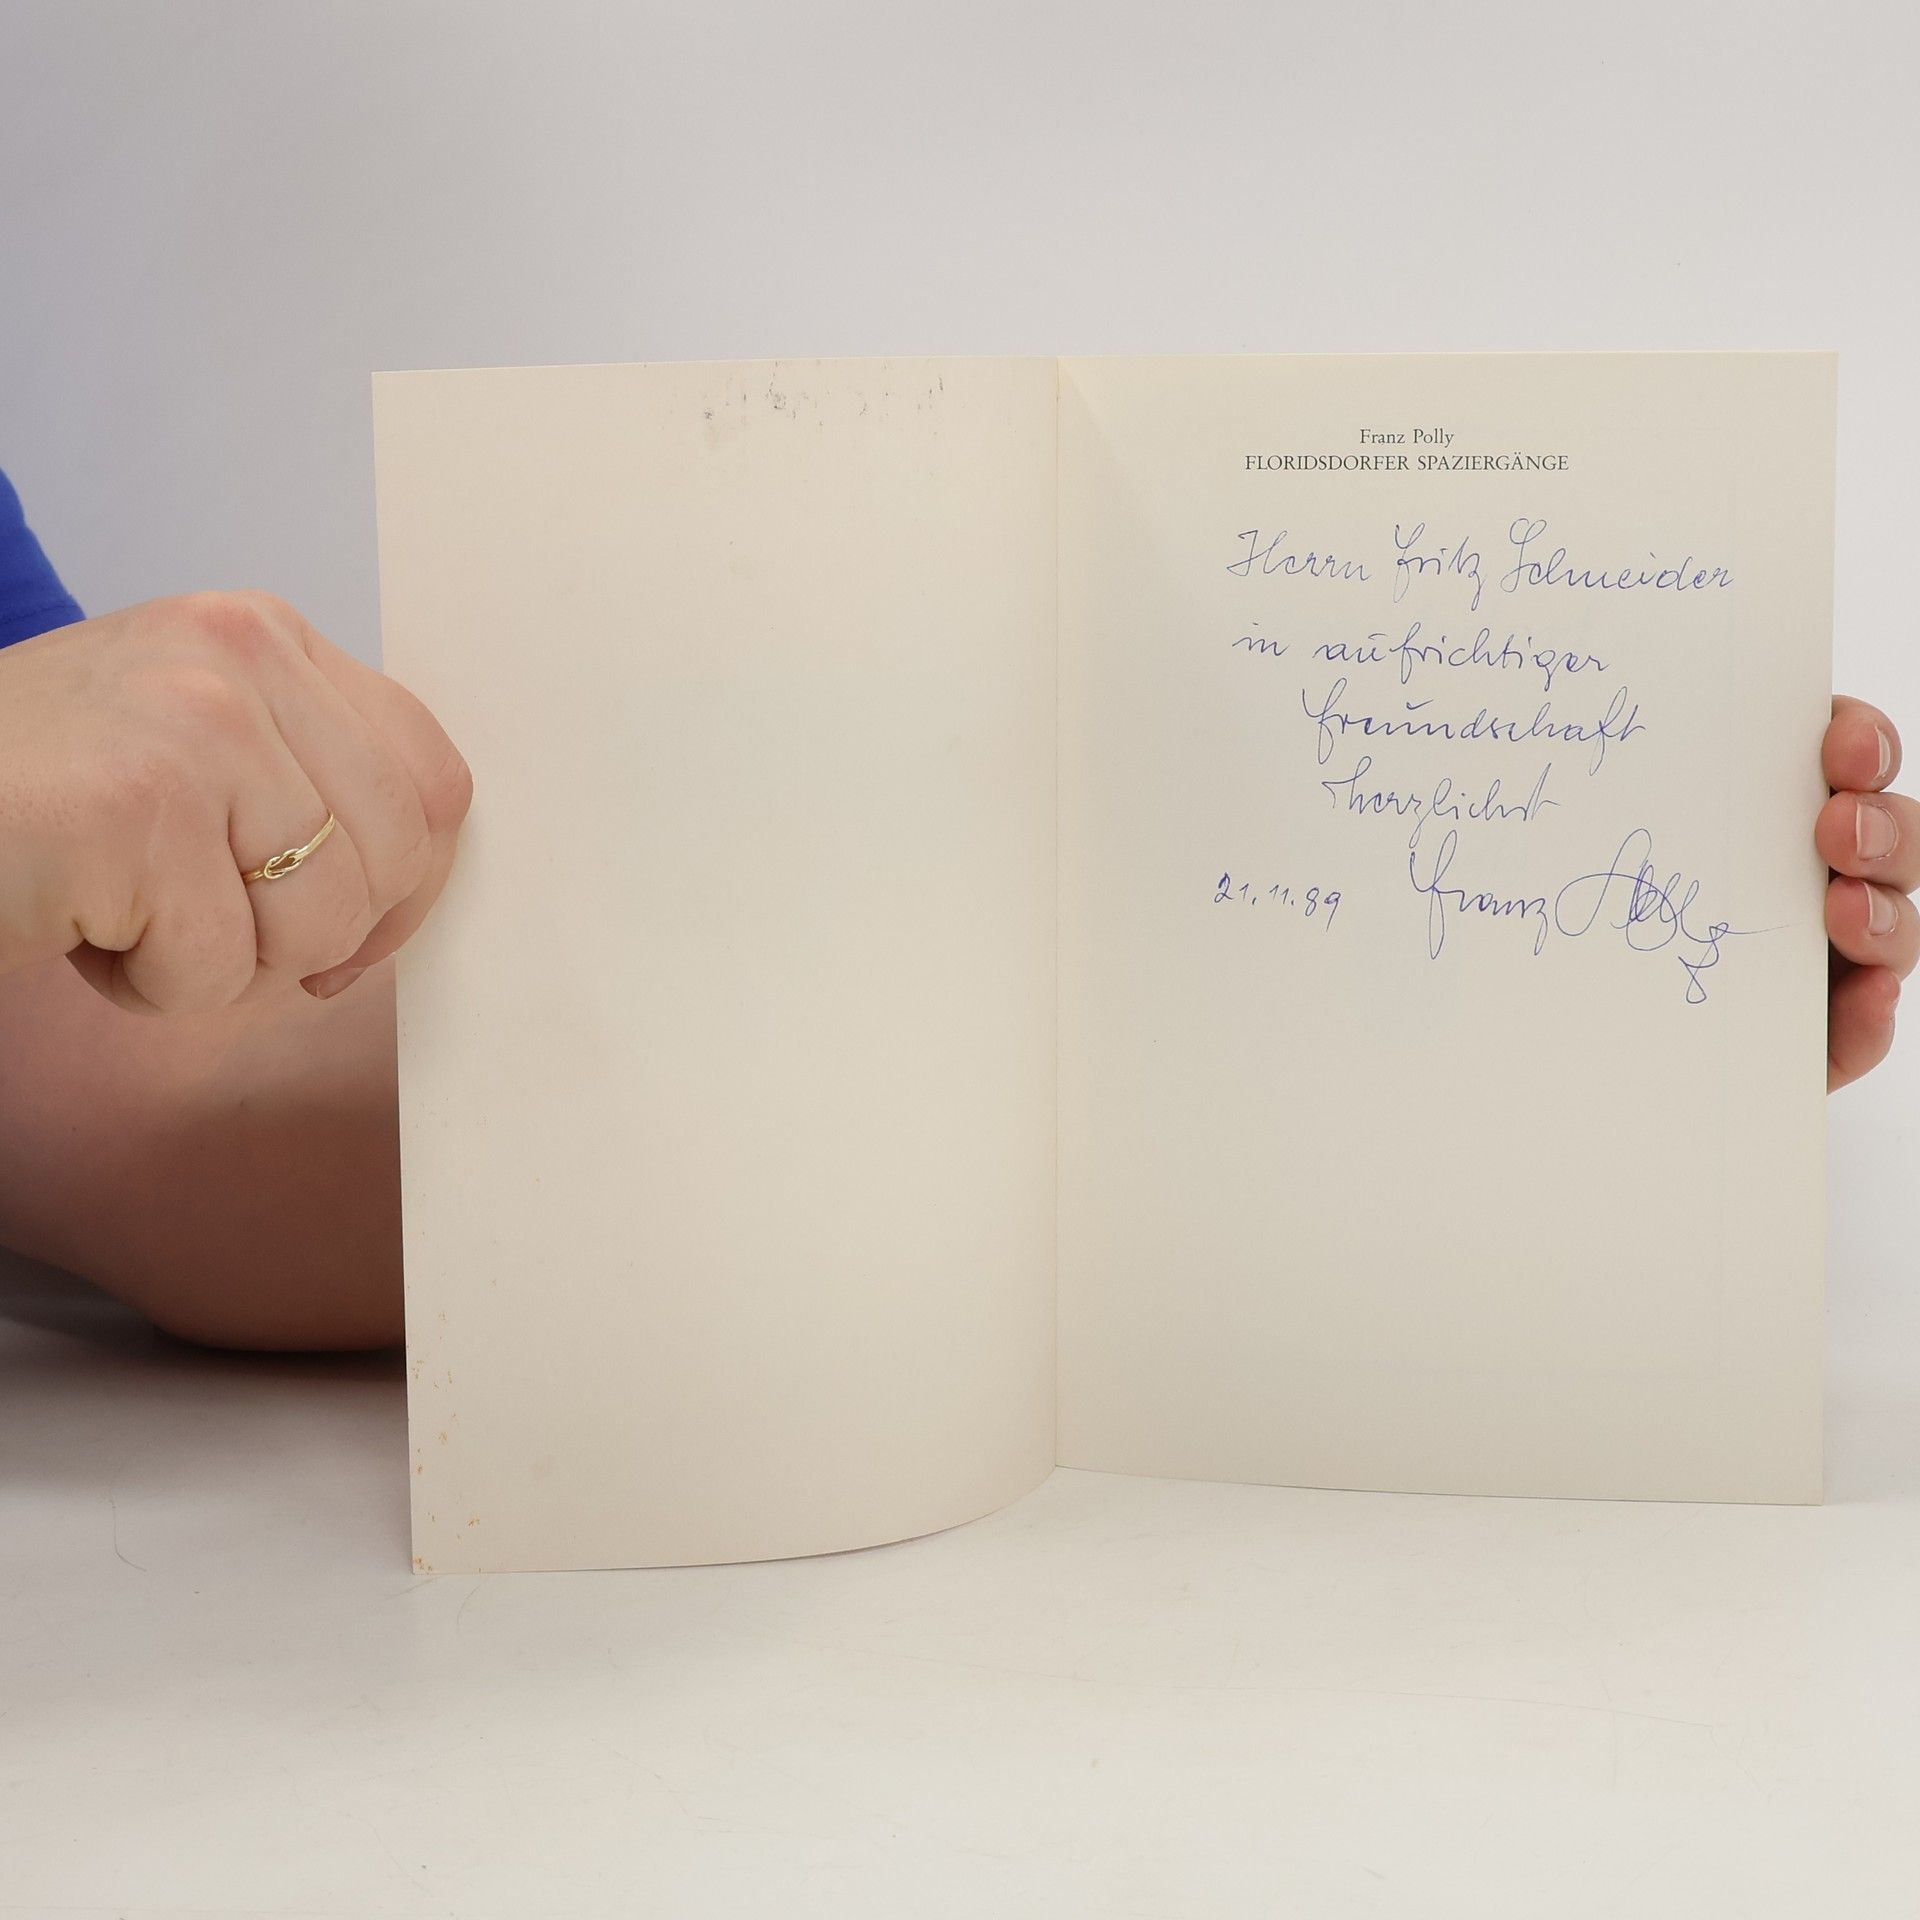 Franz Polly
FLORIDSDORFER SPAZIERGÄNGE
Herrn Fritz Schneider
in aufrichtiger
Freundschaft
herzlichst
21.11.89 Franz Polly